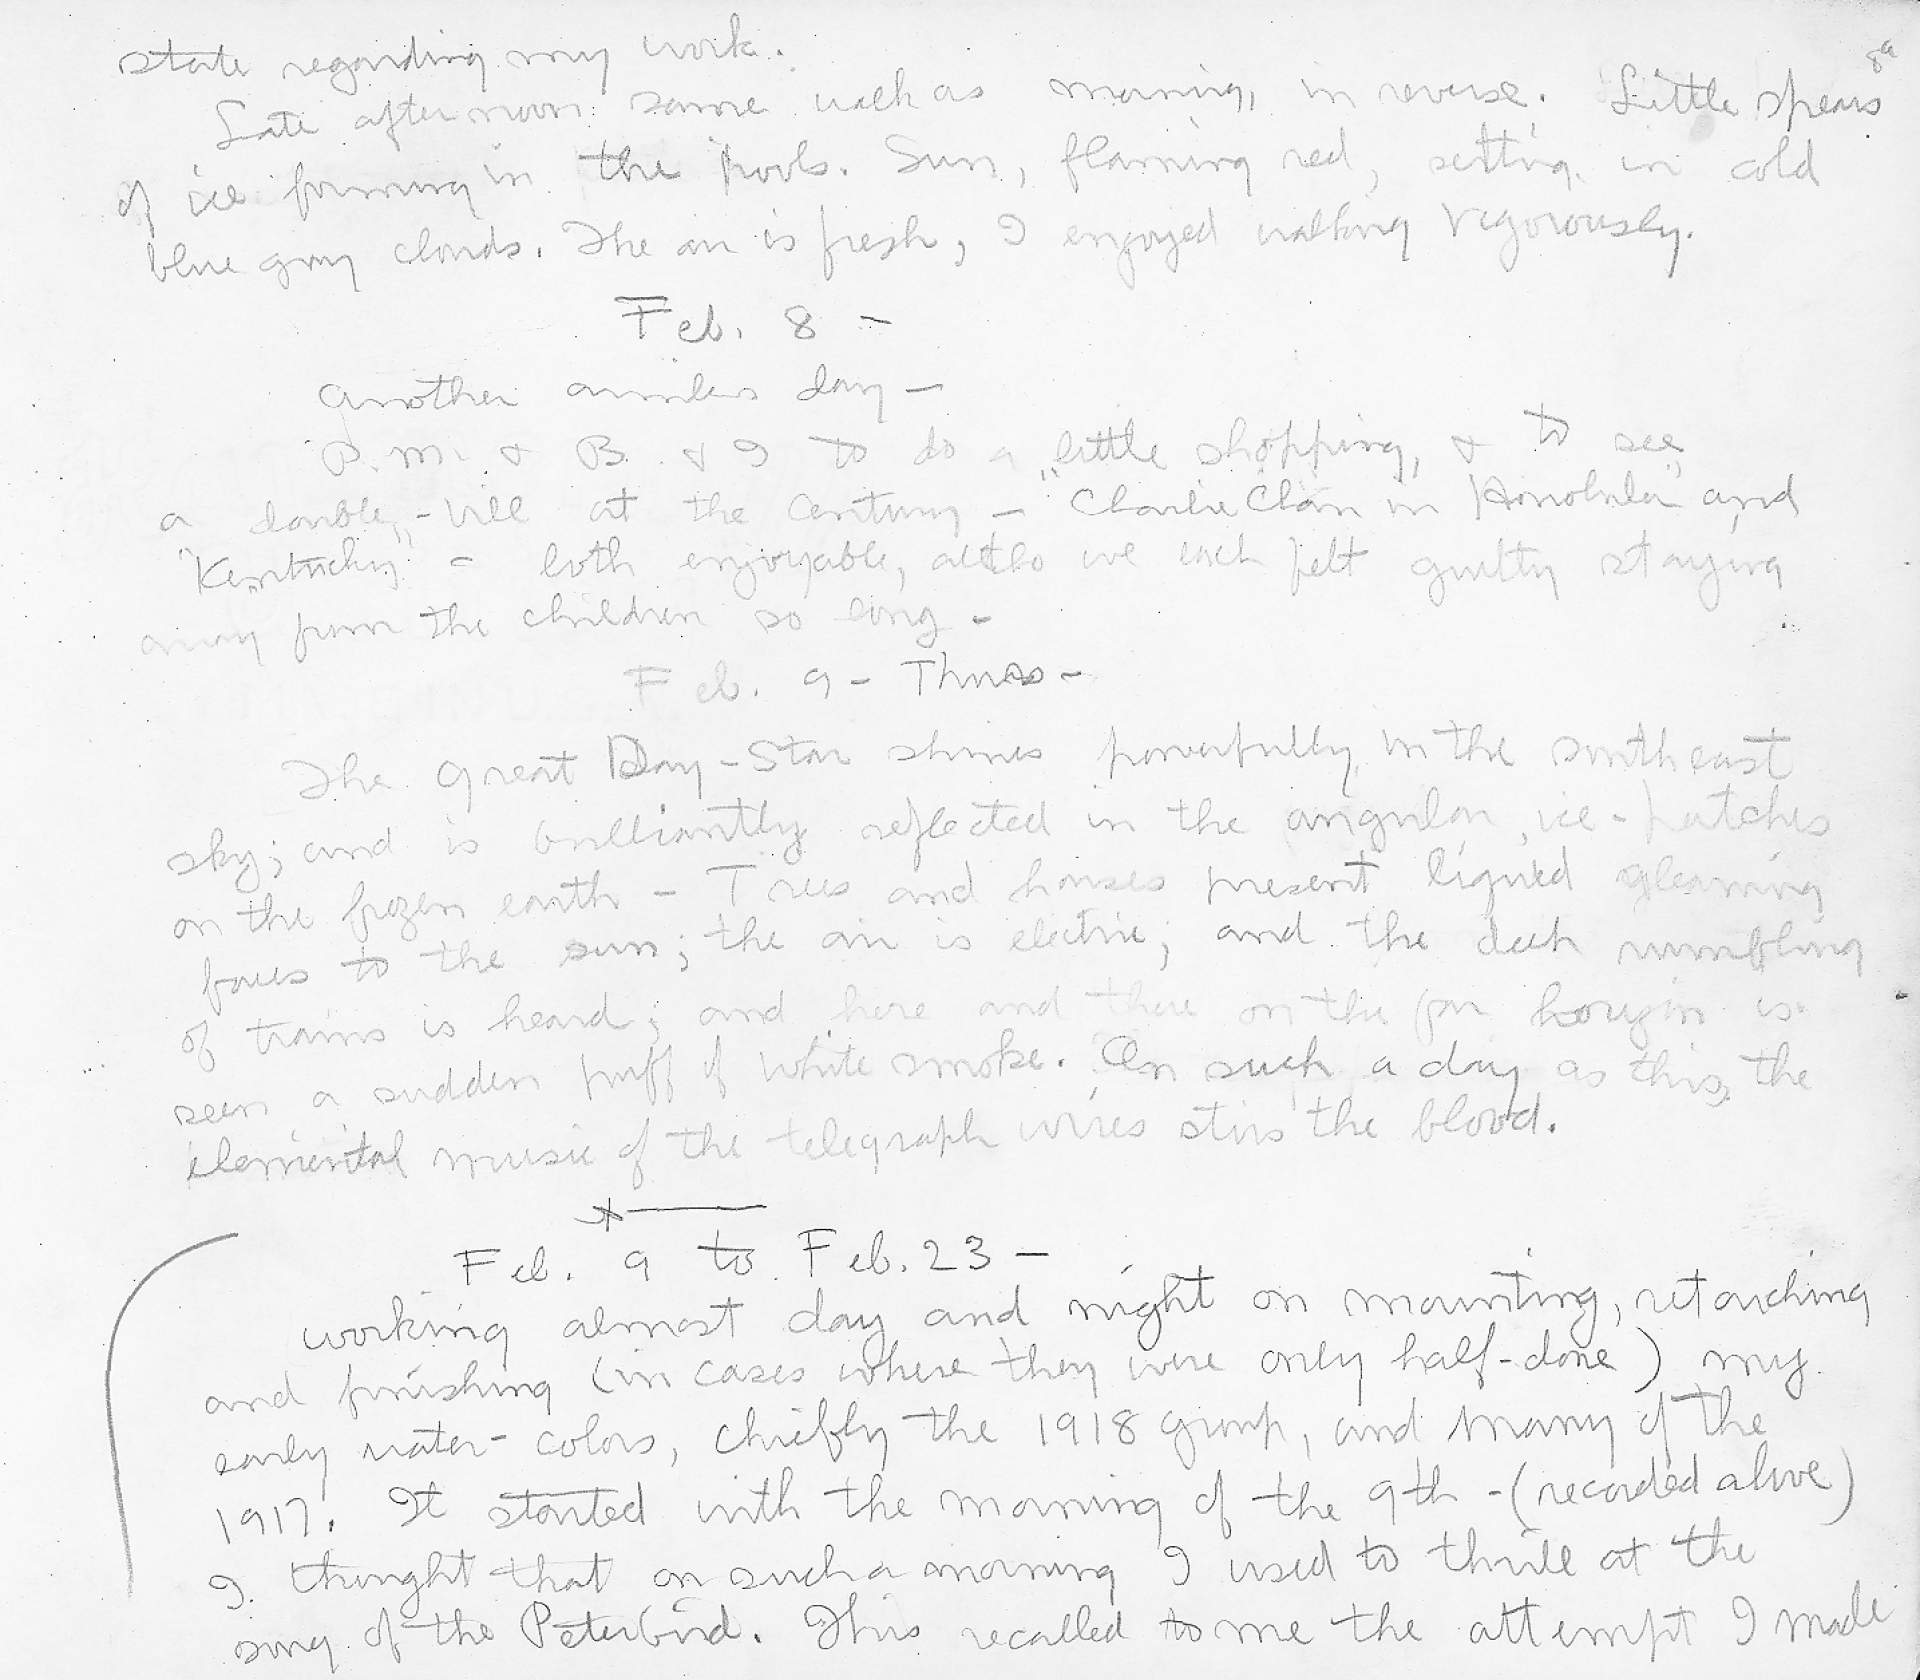 8a
state regarding my work.
Late afternoon: same walk as morning, in reverse. Little spears
of ice forming in the pools. Sun, flaming red, setting in cold
blue gray clouds. The air is fresh, I enjoyed walking vigorously.
Feb. 8 -
Another aimless day -
P.M. & B. & I to do a little shopping, & to see
a double-bill at the Century - "Charlie Chan in Honolulu" and
"Kentucky" - both enjoyable, altho we each felt guilty staying
away from the children so long -
Feb. 9 - Thurs -
The great Day-Star shines powerfully in the southeast
sky; and is brilliantly reflected in the angular ice-patches
on the frozen earth - Trees and houses present liquid gleaming
faces to the sun; the air is electric; and the deep rumbling
of trains is heard; and here and there on the far horizon is
seen a sudden puff of white smoke. On such a day as this, the
elemental music of the telegraph wires stirs the blood.
Feb. 9 to Feb. 23 -
working almost day and night on mounting, retouching
and finishing (in cases where they were only half-done) my
early water-colors, chiefly the 1918 group, and many of the
1917. It started with the morning of the 9th - (recorded above)
I thought that on such a morning I used to thrill at the
song of the Peterbird. This recalled to me the attempt I made